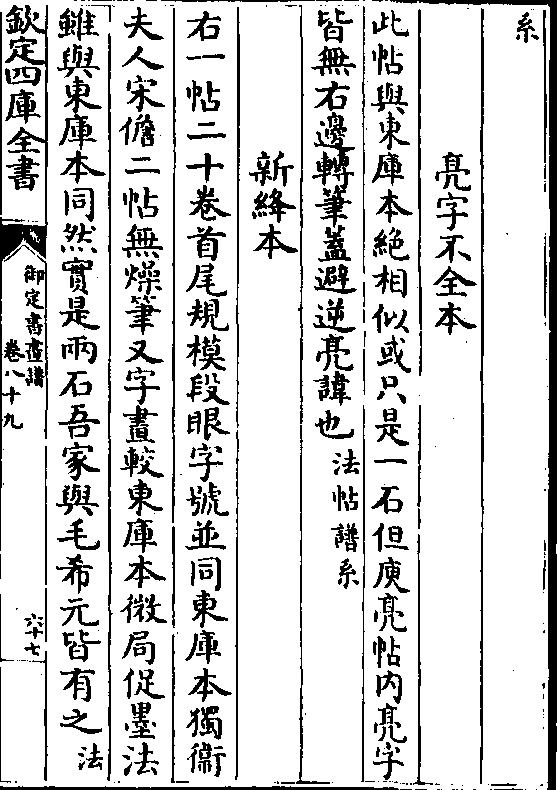 系
亮字不全本
此帖與東庫本絶相似或只是一石但庾亮帖内亮字
皆無右邊轉筆蓋避逆亮諱也法帖譜系
新絳本
右一帖二十卷首尾規模段眼字號並同東庫本獨衞
夫人宋儋二帖無燥筆又字畫較東庫本微局促墨法
雖與東庫本同然實是兩石吾家與毛希元皆有之法
欽定四庫全書
御定書畫譜
卷八十九
六十七